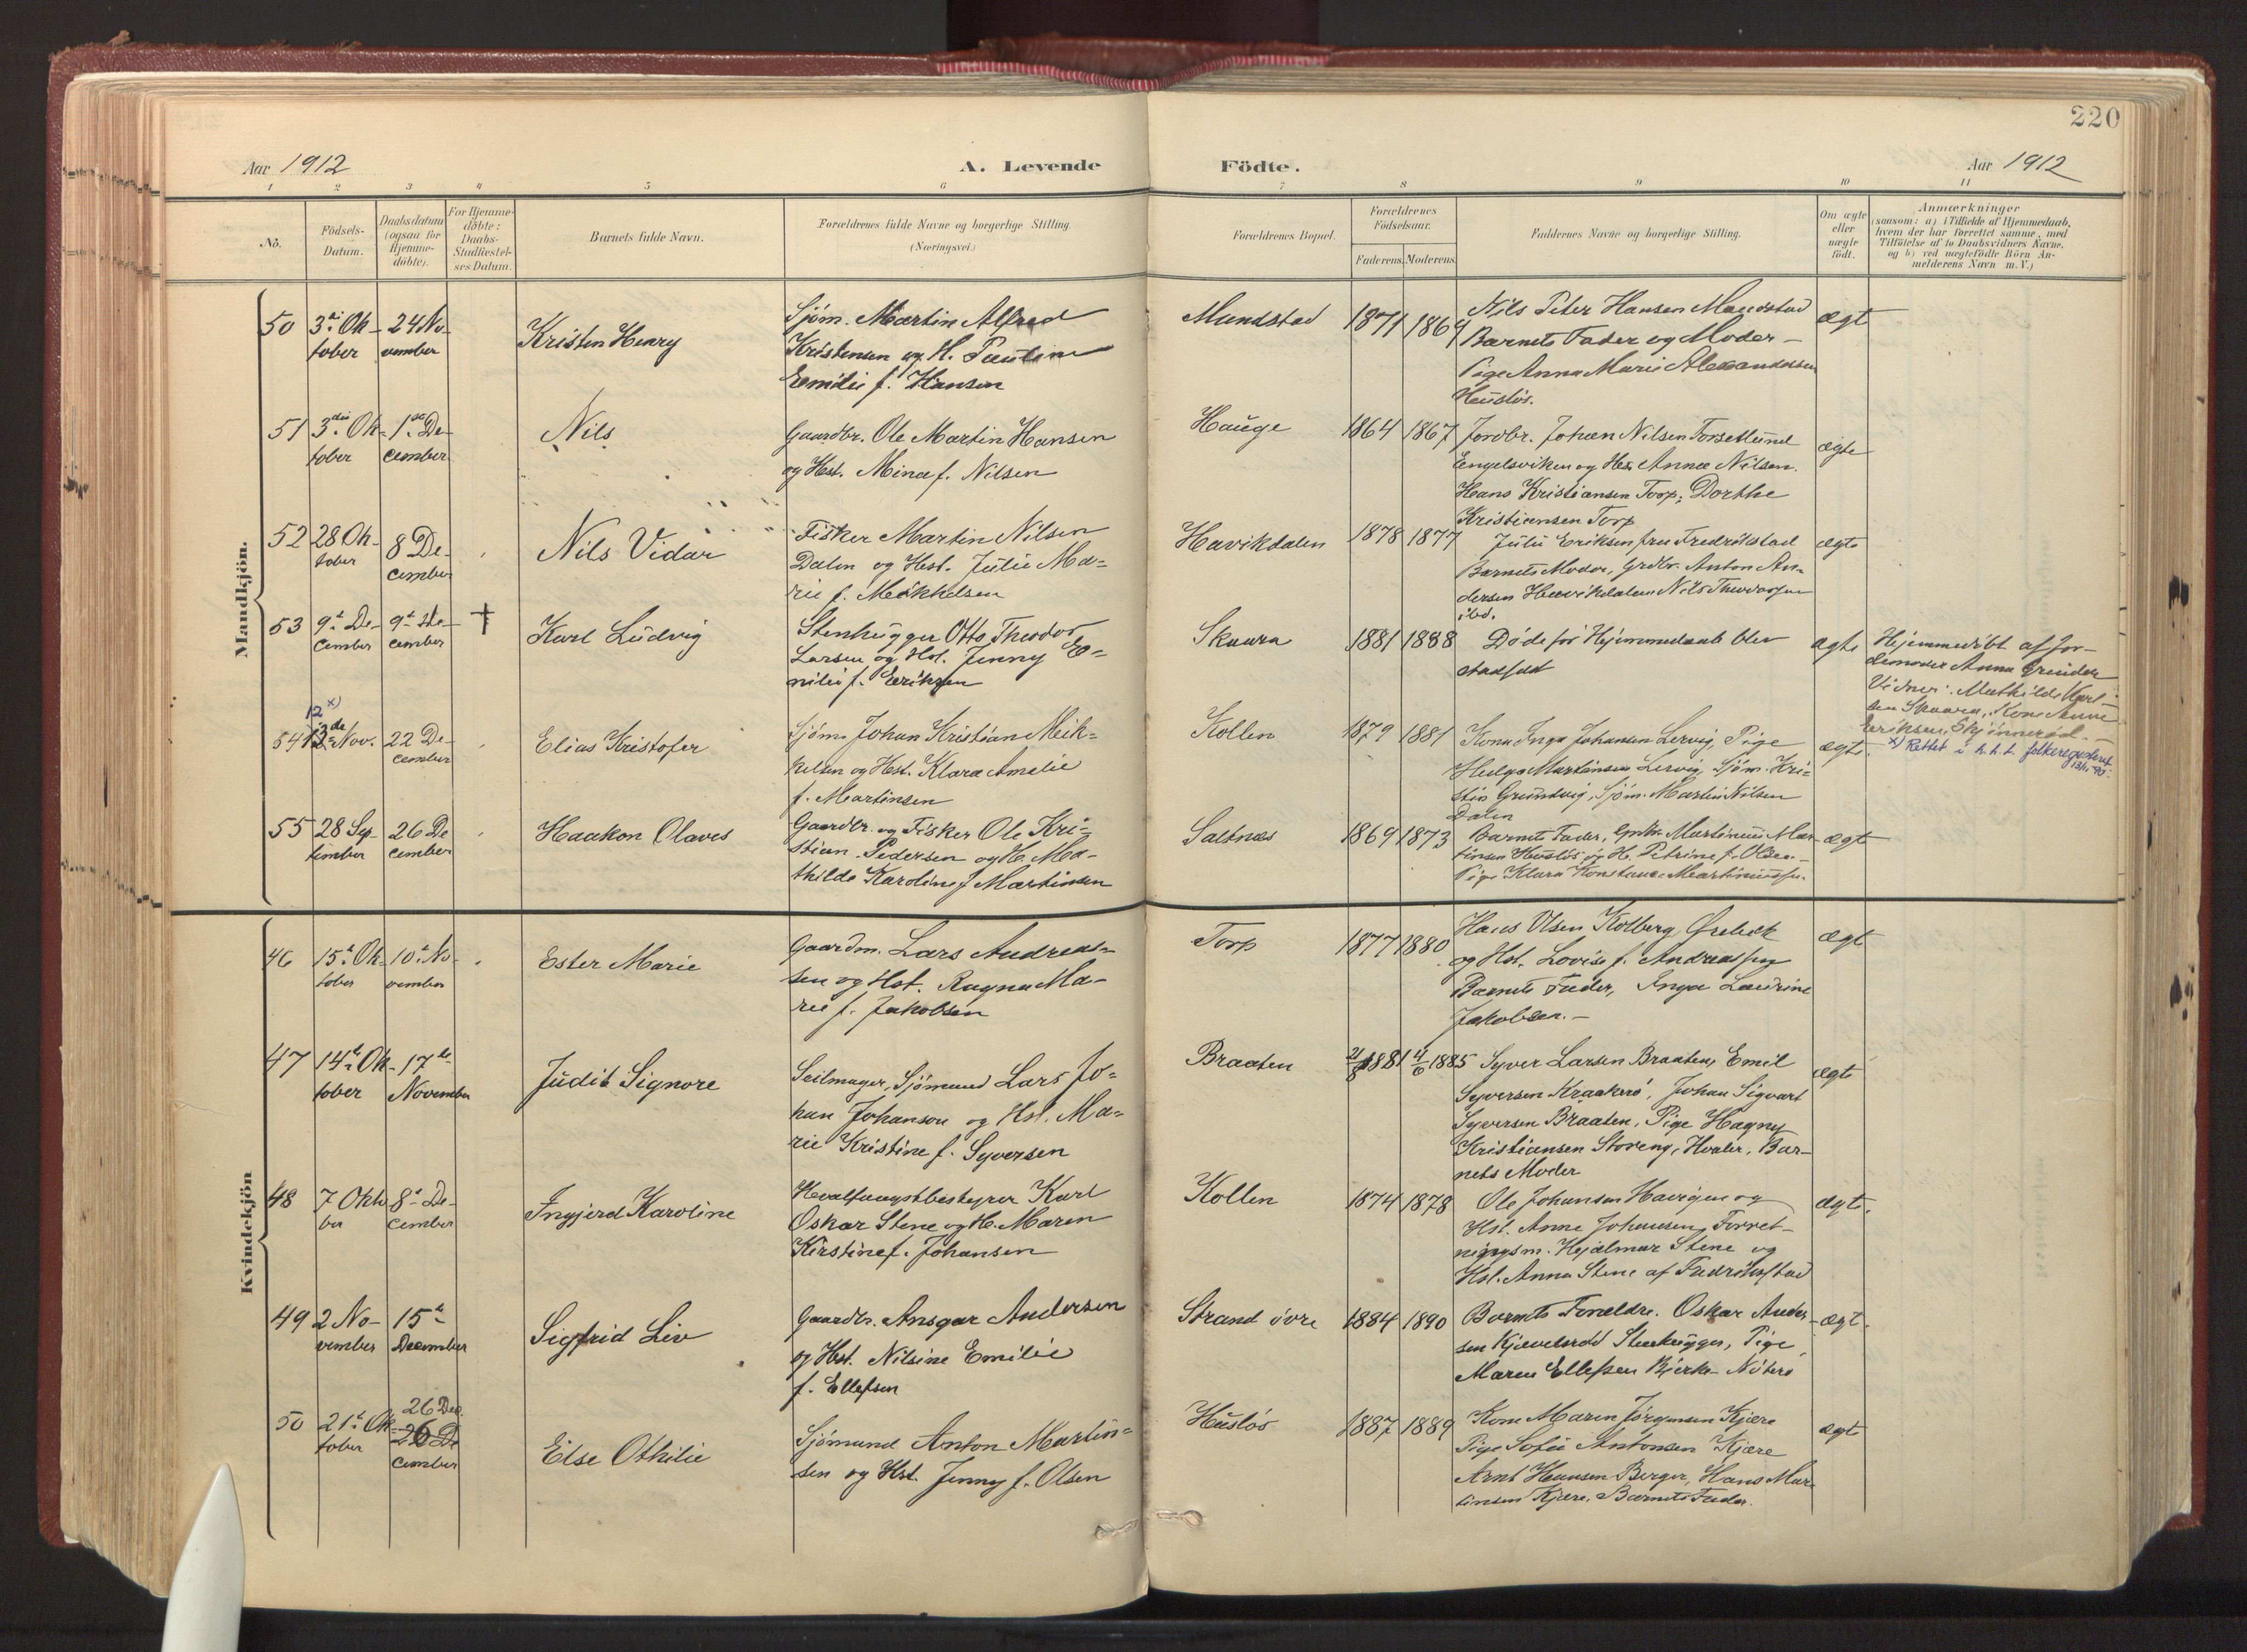 220
Aar 1912
A. Levende
Födte.
Aar 1912
1 2 3 4 5 6 7 8 9 10 11
No.
Födsels-
Datum.
Daabsdatum
(ogsaa for
Hjemme-
döbte).
For Hjemme-
döbte:
Daabs-
Stadfæstel-
ses Datum.
Barnets fulde Navn.
Forældrenes fulde Navne og borgerlige Stilling.
(Næringsvei.)
Forældrenes Bopæl.
Forældrenes
Födselsaar.
Faderens. Moderens.
Faddernes Navne og borgerlige Stilling.
Om ægte
eller
uægte
födt.
Anmærkninger
(saasom: a) i Tilfælde af Hjemmedaab,
hvem der har forrettet samme, med
Tilföielse af to Daabsvidners Navne.
og b) ved uægtefödte Börn An-
melderens Navn m. V.)
Mandkjön.
50
3die Ok-
tober
24 No-
vember
Kristen Henry
Sjøm. Martin Alfred
Kristensen og H. Pauline
Emilie f. Hansen
Mundstad
1871 1869
Nils Peter Hansen Mundstad
Barnets Fader og Moder –
Pige Anna Marie Alexandersen
Husløs.
ægt
51
3die Ok-
tober
1ste De-
cember
Nils
Gaardbr. Ole Martin Hansen
og Hst. Mina f. Nilsen
Hauge
1864 1867
Jordbr. Johan Nilsen Torsetlund
Engelsviken og Hst. Anna Nilsen.
Hans Kristiansen Torp, Dorthe
Kristiansen Torp
ægte
52
28 Ok-
tober
8 De-
cember
Nils Vidar
Fisker Martin Nilsen
Dalen og Hst. Julie Ma-
rie f. Mikkelsen
Havikdalen
1878 1877
Julie Eriksen fru Fredrikstad
Barnets Moder, Grdbr. Anton An-
dersen Havikdalen Nils Theodorsen
ibd.
ægte
53
9de De-
cember
9de De-
cember
†
Karl Ludvig
Stenhugger Otto Theodor
Larsen og Hst. Jenny E-
milie f. Eriksen
Skaara
1881 1888
Døde før Hjemmedaab blev
stadfæst
ægte
Hjemmedøbt af Jor-
demoder Anna Grinder
Vidner: Mathilde Karl-
sen Skaara, Kone Anne
Eriksen, Skjinnerød. –
54
12 x)
13de Nov.
22 De-
cember
Elias Kristofer
Sjøm. Johan Kristian Mik-
kelsen og Hst. Klara Amalie
f. Martinsen
Kollen
1879 1881
Kona Inga Johansen Lervig, Pige
Helga Martinsen Lervig, Sjøm. Kri-
stin Grundvig, Sjøm. Martin Nilsen
Dalen
ægte.
x) Rettet i h.h.t. folkeregisteret
55
28 Sep-
tember
26 De
cember
Haakon Olaves
Gaardbr. og Fisker Ole Kri-
stian Pedersen og H. Ma-
thilde Karoline f. Martinsen
Saltnes
1869 1873
Barnets Fader, Gmbr. Martinius Mar-
tinsen Husløs og H. Petrine f. Olsen
Pige Klara Konstanse Martiniussen.
ægte
Kvindekjön
46
15de Ok-
tober
10de No-
vember
Ester Marie
Gaardm. Lars Andreas-
sen og Hst. Ragna Ma-
rie f. Jakobsen
Torp
1877 1880
Hans Olsen Kolberg Ørebek
og Hst. Lovise f. Andreassen
Barnets Fader, Inga Laurine
Jakobsen. –
ægt
47
14de Ok-
tober
17de
November
Judit Signore
Seilmager, Sjømand Lars Jo-
han Johanson og Hst. Ma-
rie Kristine f. Syversen
Braaten
21/8 1881 4/6 1885
Syver Larsen Braaten, Emil
Syversen Kraakerø, Johan Sigvart
Syversen Braaten, Pige Hagny
Kristiansen Storeng, Hvaler, Bar-
nets Moder
ægt
48
7 Okto
ber
8de De-
cember
Ingjerd Karoline
Hvalfangstbestyrer Karl
Oskar Stene og H. Maren
Kirstine f. Johansen
Kollen
1874 1878
Ole Johansen Havigen og
Hst. Anne Johansen, Forret-
ningsm. Hjalmar Stene og
Hst. Anna Stene af Fredrikstad
ægte.
49
2 No-
vember
15de
December
Sigfrid Liv
Gaardbr. Ansgar Andersen
og Hst. Nilsine Emilie
f. Ellefsen
Strand øvre
1884 1890
Barnets Forældre. Oskar Ander-
sen Kjevelsrød Stenhugger, Pige
Maren Ellefsen Bjerke Nøterø
ægt.
50
21de Ok-
tober
26 Dec.
26 De
cember
Else Othilie
Sjømand Anton Martin-
sen og Hst. Jenny f. Olsen
Husløs
1887 1889
Kone Maren Jørgensen Kjære
Pige Sofie Antonsen Kjære
Arnt Hansen Berger, Hans Mar
tinsen Kjære, Barnets Fader.
ægt